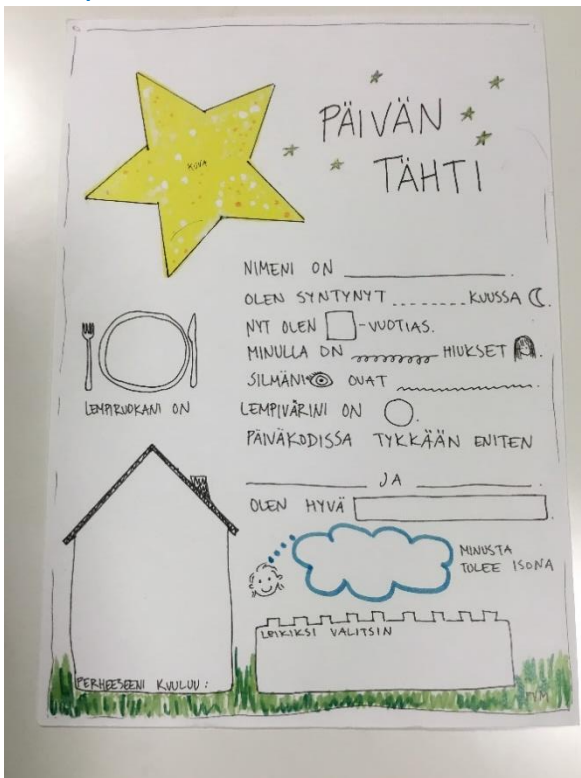 PÄIVÄN
TÄHTI
KUVA
NIMENI ON ____________.
OLEN SYNTYNYT _______KUUSSA.
NYT OLEN -VUOTIAS.
MINULLA ON HIUKSET.
SILMÄNI OVAT.
LEMPIRUOKANI ON
LEMPIVÄRINI ON.
PÄIVÄKODISSA TYKKÄÄN ENITEN
__________ JA __________.
OLEN HYVÄ
MINUSTA
TULEE ISONA
LEIKIKSI VALITSIN
PERHEESEENI KUULUU:
PVM